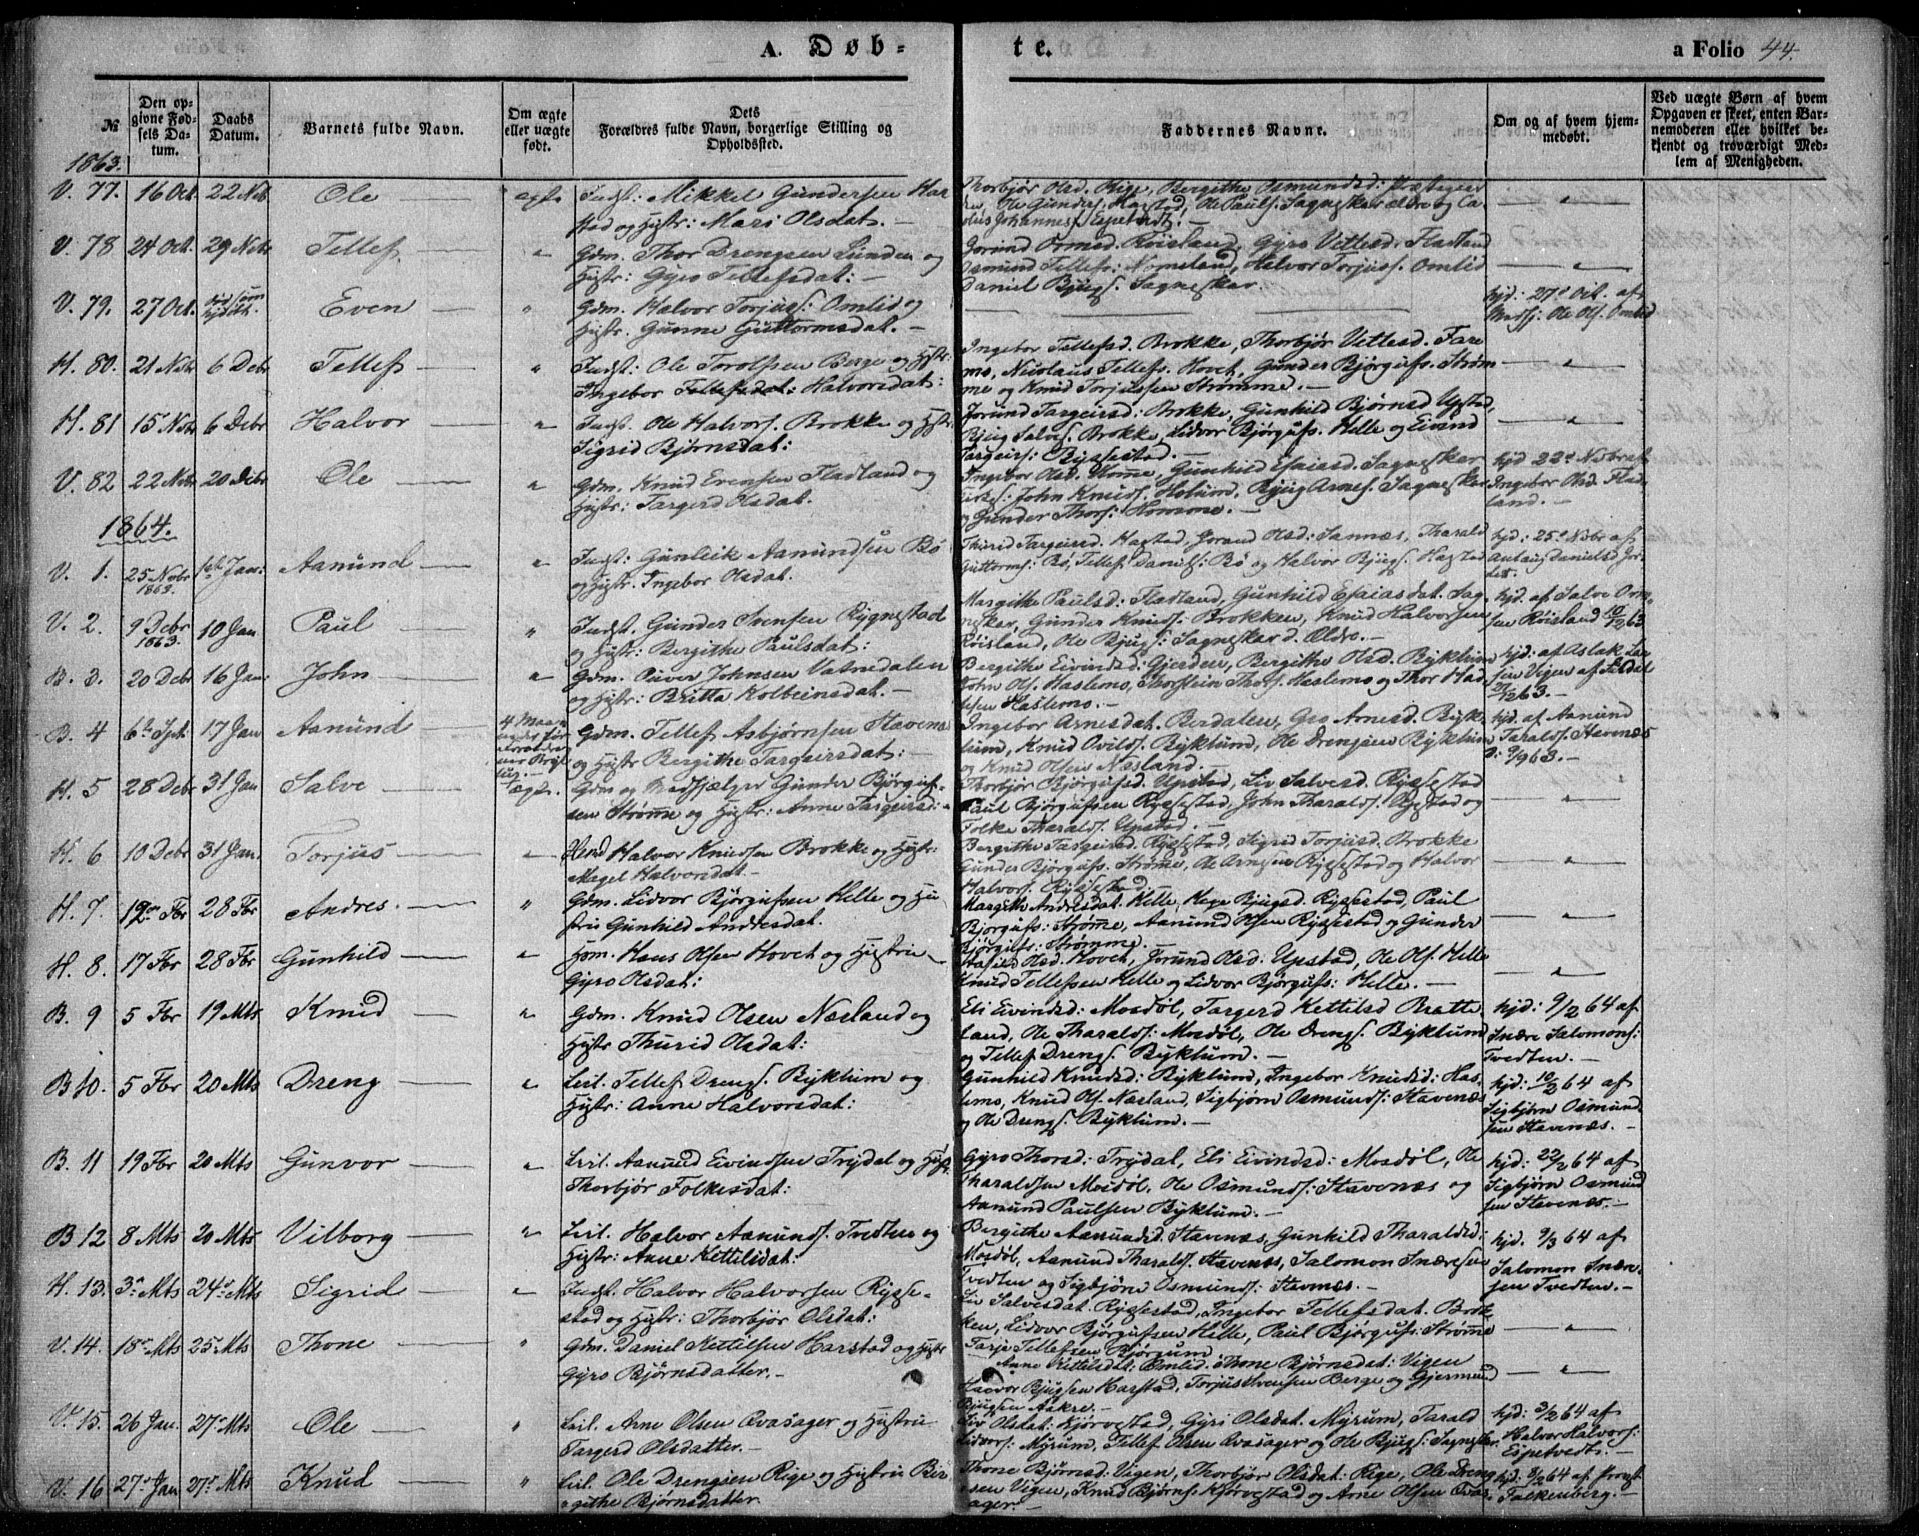 A. Døb-
te.
a Folio 44.
№
Den op-
givne Fød-
sels Da-
tum.
Daabs
Datum.
Barnets fulde Navn.
Om ægte
eller uægte
født.
Dets
Forældres fulde Navn, borgerlige Stilling og
Opholdssted.
Faddernes Navne.
Om og af hvem hjem-
medøbt.
Ved uægte Børn af hvem
Opgaven er skeet, enten Bar-
nemoderen eller hvilket be-
kjendt og troværdigt Med-
lem af Menigheden.
1863.
V. 77. 16 Oct. 22 Nob Ole ægte Indst: Mikkel Gundersen Har-
stad og Hustr: Mari Olsdat. —
Thorbjør Olsd. Rige, Bergithe Osmundsd: Præstegaar
den, Ole Gunders. Hagstad, Ole Pauls: Sagneskar ældre og
Johannes Espetvedt. —
V. 78 24 Oct. 29 Nobr Tellef " Gdm. Thor Drengsen Lunden og
Hustr: Gyro Tellefsdat: —
Jorund Ormsd. Røisland, Gyro Vettesd. Fladland
Osmund Tellefs: Nomeland, Halvor Torjuss. Omlid
Daniel Bjugs. Sagneskar.
V. 79. 27 Oct. Even " Gdm. Halvor Torjus: Omlid og
Hustr: Gunne Guttormsdat. —
hjd: 27de Oct. af
Ole Ols. Omlid
H. 80. 21 Nobr 6 Debr Tellef " Indst: Ole Torolfsen Berge og Hstr:
Ingebor Tellefsdat: Halvorsdat:
Ingebor Tellefsd. Brokke, Thorbjør Vettesd. Fare
mo, Nicolaus Tellefs. Hovet, Gunder Bjørgufs. Strøm
me og Knud Torjussen Strømme. —
H. 81 15 Nobr 6 Debr Halvor " Indst. Ole Halvors. Brokke og Hstr:
Sigrid Bjørnsdat:
Jorund Targeirsd: Brokke, Gunhild Bjørnsd Upstad,
Bjug Salves. Brokke, Lidvor Bjørgufs. Helle og Eivind
Targeirs: Rysestad. —
V. 82 22 Nobr 20 Debr Ole " Gdm. Knud Evensen Fladland og
Hustr: Targerd Olsdat:
Ingebor Olsd. Homme, Gunhild Esaiasd. Sagneskar
John Knuds. Holum, Bjug Arnes. Sagneskar
og Gunder Thors: Homme. —
hjd 22de Nobr af
Ingebor Olsd. Flad-
land. —
1864.
V. 1. 25 Nobr 1863. 1ste Jan: Aamund " Indst: Gunleik Aamundsen Bø
og Hustr. Ingebor Olsdat.
Thurid Targeirsd. Hagstad, Jorand Olsd. Sannæs, Tharald
Guttorms: Bø, Tellef Daniels: Bø og Halvor Bjugs. Hagstad
hjd: 25de Nobr af
Danielsd
V. 2. 9 Debr 1863. 10 Jan Paul " Indst. Gunder Svensen Rygnestad
og Hustr: Bergithe Paulsdat:
Margithe Paulsd: Fladland, Gunhild Esaiasdat. Sag-
neskar, Gunder Knuds: Brokken, Knud Halvorsen
Røisland, Ole Bjugs: Sagneskar d. Ældre. —
hjd. af Salve Orm-
sen Røisland 10/12 63
B. 3. 20 Debr 16 Jan John " Gdm. Oliver Johnsen Vatnedalen
og Hustr: Britta Kolbeinsdat. —
Bergithe Eivindsd: Gjerden, Bergithe Olsd. Byklum
John Ols. Haslemo, Thorstein Thors. Haslemo og Thor
Haslemo. —
hjd: af Aslak
Vigen
B. 4 6te Spt. 17 Jan Aamund Gdm. Tellef Asbjørnsen Stavenæs
og Hustr Bergithe Targeirsdat: —
Ingebor Arnesdat. Berdalen, Gro Arnesd. Byk-
lum, Knud Ovilds. Byklum, Ole Drengsen Byklum
og Knud Olsen Næsland. —
hjd. af Aamund
Taralds. Stavenæs
d: 9/9 63. —
H. 5 28 Debr 31 Jan Salve ægte Gdm og Medhjælper Gunder Bjørguf-
sen Strømme og Hustr: Anne Targeirsd: —
Thorbjør Bjørgufsd. Upstad, Liv Salvesd. Rysestad
Paul Bjørgufsen Rysestad, John Tharalds. Rysestad og
Folke Tharalds. Upstad. —
H. 6 10 Debr 31 Jan. Torjus — Halvor Knudsen Brokke og Hstr:
Magel Halvorsdat —
Bergithe Targeirsd. Rysestad, Sigrid Torjusd. Brokke
Gunder Bjørgufs. Strømme, Ole Arnesen Rysestad og Halvor
Halvors. Rysestad. —
H. 7. 12 Fbr 28 Fbr Andres " Gdm. Lidvor Bjørgufsen Helle og Hu-
stru Gunhild Andresdat.
Margith Andresdat. Helle, Hege Bjugsd. Rysestad, Paul
Bjørgufs: Strømme, Aanund Olsen Rysestad og Gunder
Bjørgufs: Strømme. —
H. 8. 17 Fbr 28 Fbr Gunhild " Hans Olsen Hovet og Hustru
Gyro Olsdat:
Olsd. Hovet, Jorund Olsd. Upstad, Ole Ols. Helle
Knud Tellefsen Helle og Lidvor Bjørgufs: Helle. —
B. 9 5 Fbr 19 Mts Knud " Gdm. Knud Olsen Næsland og
Hustr Thurid Olsdat:
Eli Eivindsd: Mosdøl, Targerd Kettilsd Bratte-
land, Ole Tharalds: Mosdøl, Ole Drengs. Byklum
og Tellef Drengs. Byklum. —
hjd: 9/2 64 af
Snære Salomons:
Tvedten. —
B 10. 5 Fbr 20 Mts Dreng " Leil. Tellef Drengs. Byklum og
Hustr: Anne Halvorsdat:
Gunhild Knudsd: Byklum, Ingebor Knudsd: Has-
lemo, Knud Ols. Næsland, Sigbjørn Osmunds: Stavenæs
og Ole Drengs. Byklum. —
hjd: 10/2 64 af
Sigbjørn Osmund
sen Stavenæs. —
B. 11 19 Fbr 20 Mts Gunvor " Leil. Aamund Eivindsen Trydal og Hustr
Thorbjør Folkesdat:
Gyro Thorsd: Trydal, Eli Eivindsd: Mosdøl, Ole
Tharaldsen Mosdøl, Ole Osmunds: Stavenæs og
Aamund Paulsen Byklum. —
hjd: 22/2 64 af
Sigbjørn Osmund
sen Stavenæs. —
B 12 8 Mts 20 Mts Vilborg " Leil. Halvor Aamunds. Tvedten og
Hustr: Anne Kettilsdat:
Bergithe Aamundsd. Stavenæs, Gunhild Tharaldsd:
Mosdøl, Aamund Tharalds. Stavenæs, Salomon Snæresen
Tvedten og Sigbjørn Osmunds: Stavenæs. —
hjd. 9/3 64 af
Salomon Snære-
sen Tvedten. —
H. 13. 3de Mts 24de Mts Sigrid " Indst. Halvor Halvorsen Ryse-
stad og Hustr: Thorbjør Olsdat:
Liv Salvesdat. Rysestad, Ingebor Tellefsdat. Brok-
ken, Lidvor Bjørgufsen Helle, Paul Bjørgufs: Strømme
Tarje Tellefsen Bjørgum
V. 14. 18de Mts 25 Mts Thone " Gdm. Daniel Kettilsen Harstad og Hustr
Gyro Bjørnsdatter. —
Anne Kettilsdat: Omlid. Thone Bjørnsdat: Vigen
Halvor Bjugsen Harstad, Torjus Svensen Berge og Gjermund
Bjugsen Aakre. —
V. 15. 26 Jan. 27de Mts Ole " Leil. Arne Olsen Qvasager og Hustru
Targerd Olsdatter. —
Liv Olsdat: Kjørvestad, Gyri Olsdat. Myrum, Tarald
Lidvors: Myrum, Tellef Olsen Qvasager og Ole Bjugs: Sagneskar.
hjd: 3/2 64 af
Halvor Halvors:
Espetvedt. —
V. 16 27de Jan 27de Mts Knud " Leil. Ole Drengsen Rige og Hustru Ber-
githe Bjørnsdatter.
Thone Bjørnsd. Vigen, Thorbjør Olsdat: Rige, Ole Dreng-
sen Vigen, Knud Bjørns. Kjørvestad og Arne Olsen Qvas-
ager. —
hjd: 9/2 64 af Provst
Falkenberg. —